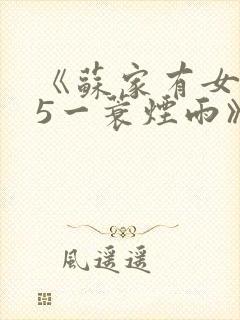 《蘇家有女
5一蓑煙雨》
風遥遥